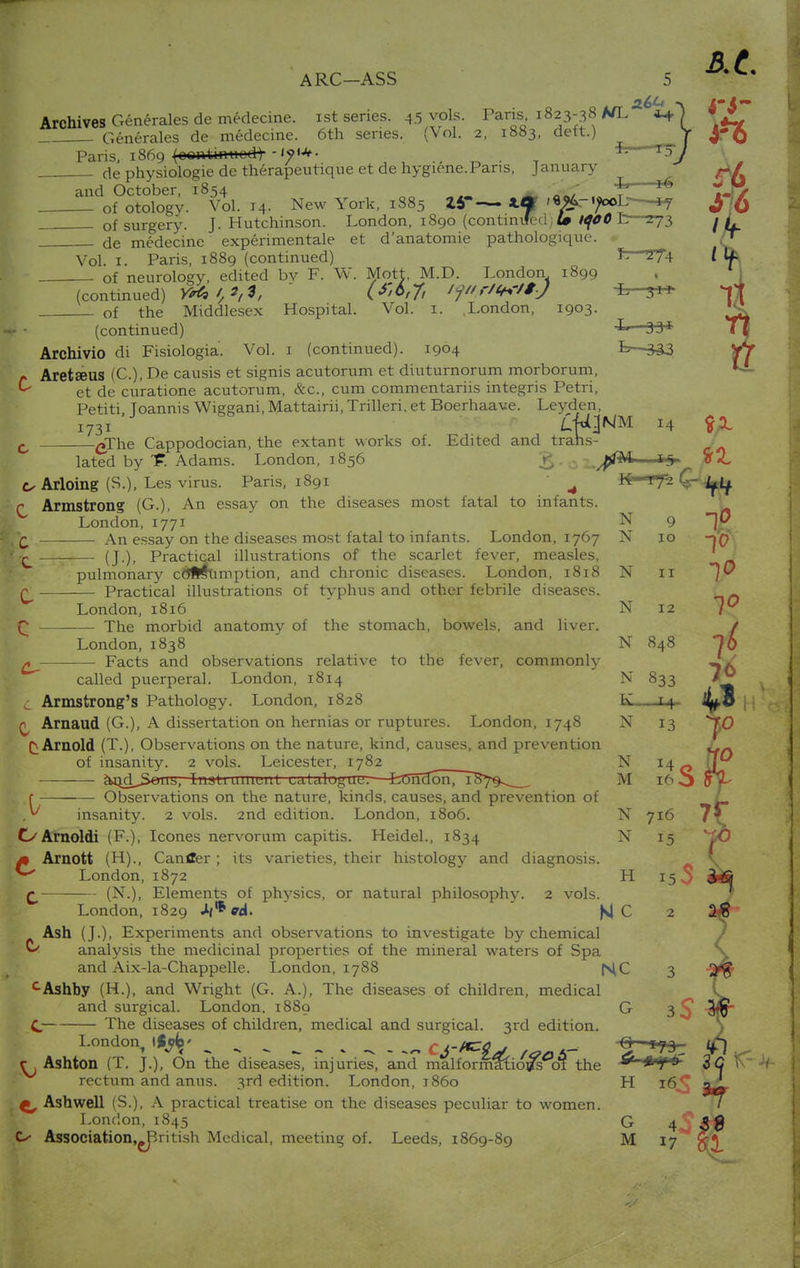 B.C.
ARC—ASS 5
Archives Générales de médecine. 1st series. 45 vols. Paris, 1823-38 ML 264
——— Générales de médecine. 6th series. (Vol. 2, 1883, deft.)
Paris, 1869 (continued) - 1914. L 15
——— de physiologie de thérapeutique et de hygiène. Paris, January
and October, 1854 L 16 56
——— of otology. Vol. 14. New York, 1885 L 17 56
——— of surgery. J. Hutchinson. London, 1890 (continued) to 1900 L 273 14
——— de médecine expérimentale et d'anatomie pathologique.
Vol. 1. Paris, 1889 (continued) L 274 14
——— of neurology, edited by F. W. Mott, M.D. London, 1899
(continued) Vols 1, 2, 3, L 311 11
——— of the Middlesex Hospital. Vol. 1. London, 1903.
(continued) L 331 11
Archivio di Fisiologia. Vol. 1 (continued). 1904 L 333 17
C Aretæus (C.), De causis et signis acutorum et diuturnorum morborum,
et de curatione acutorum, &c., cum commentariis integris Petri,
Petiti, Joannis Wiggani, Mattairii, Trilleri, et Boerhaave. Leyden,
1731 NM 14 82
C ——— The Cappodocian, the extant works of. Edited and trans-
lated by F. Adams. London, 1856 M 15 82
C Arloing (S.), Les virus. Paris, 1891 K 172 G 44
C Armstrong (G.), An essay on the diseases most fatal to infants.
London, 1771 N 9 70
C ——— An essay on the diseases most fatal to infants. London, 1767 N 10 70
C ——— (J.), Practical illustrations of the scarlet fever, measles,
pulmonary consumption, and chronic diseases. London, 1818 N 11 70
C ——— Practical illustrations of typhus and other febrile diseases.
London, 1816 N 12 70
C ——— The morbid anatomy of the stomach, bowels, and liver.
London, 1838 N 848 76
C ——— Facts and observations relative to the fever, commonly
called puerperal. London, 1814 N 833 76
C Armstrong's Pathology. London, 1828 K 14 43
C Arnaud (G.), A dissertation on hernias or ruptures. London, 1748 N 13 70
C Arnold (T.), Observations on the nature, kind, causes, and prevention
of insanity. 2 vols. Leicester, 1782 N 14 70
——— and Sons, Instrument catalogue. London, 1879 M 16 S
C ——— Observations on the nature, kinds, causes, and prevention of
insanity. 2 vols. 2nd edition. London, 1806. N 716 75
C Arnoldi (F.), Icones nervorum capitis. Heidel., 1834 N 15 70
C Arnott (H)., Cancer; its varieties, their histology and diagnosis.
London, 1872 H 15 S
C ——— (N.), Elements of physics, or natural philosophy. 2 vols.
London, 1829 4th ed. N C 2 28
C Ash (J.), Experiments and observations to investigate by chemical
analysis the medicinal properties of the mineral waters of Spa
and Aix-la-Chappelle. London, 1788 N C 3
C Ashby (H.), and Wright (G. A.), The diseases of children, medical
and surgical. London, 1889 G 3 S
C ——— The diseases of children, medical and surgical. 3rd edition.
London, 1896 G 173
C Ashton (T. J.), On the diseases, injuries, and malformations of the
rectum and anus. 3rd edition. London, 1860 H 16 S
C Ashwell (S.), A practical treatise on the diseases peculiar to women.
London, 1845 G 4 S 58
C Association, British Medical, meeting of. Leeds, 1869-89 M 17 81